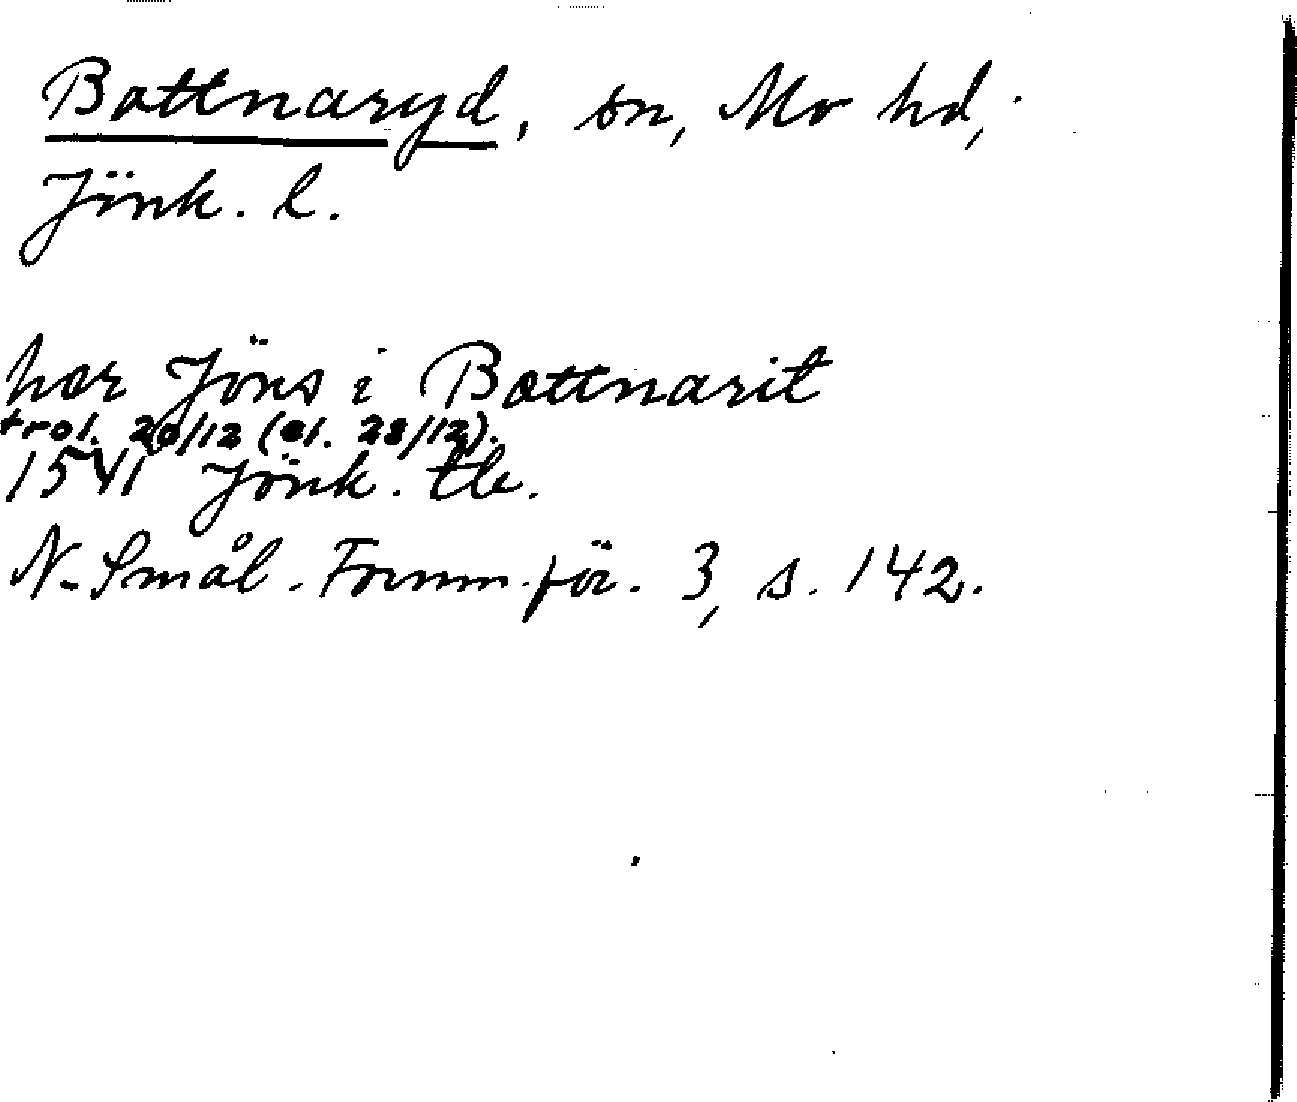 Bottnaryd, sn, Mo hd,
Jönk. l.
hær Jöns i Bottnarit
trol. 20/12 (el. 28/12).
1541 Jönk. tb.
N. Smål. Fornm. för. 3, s. 142.